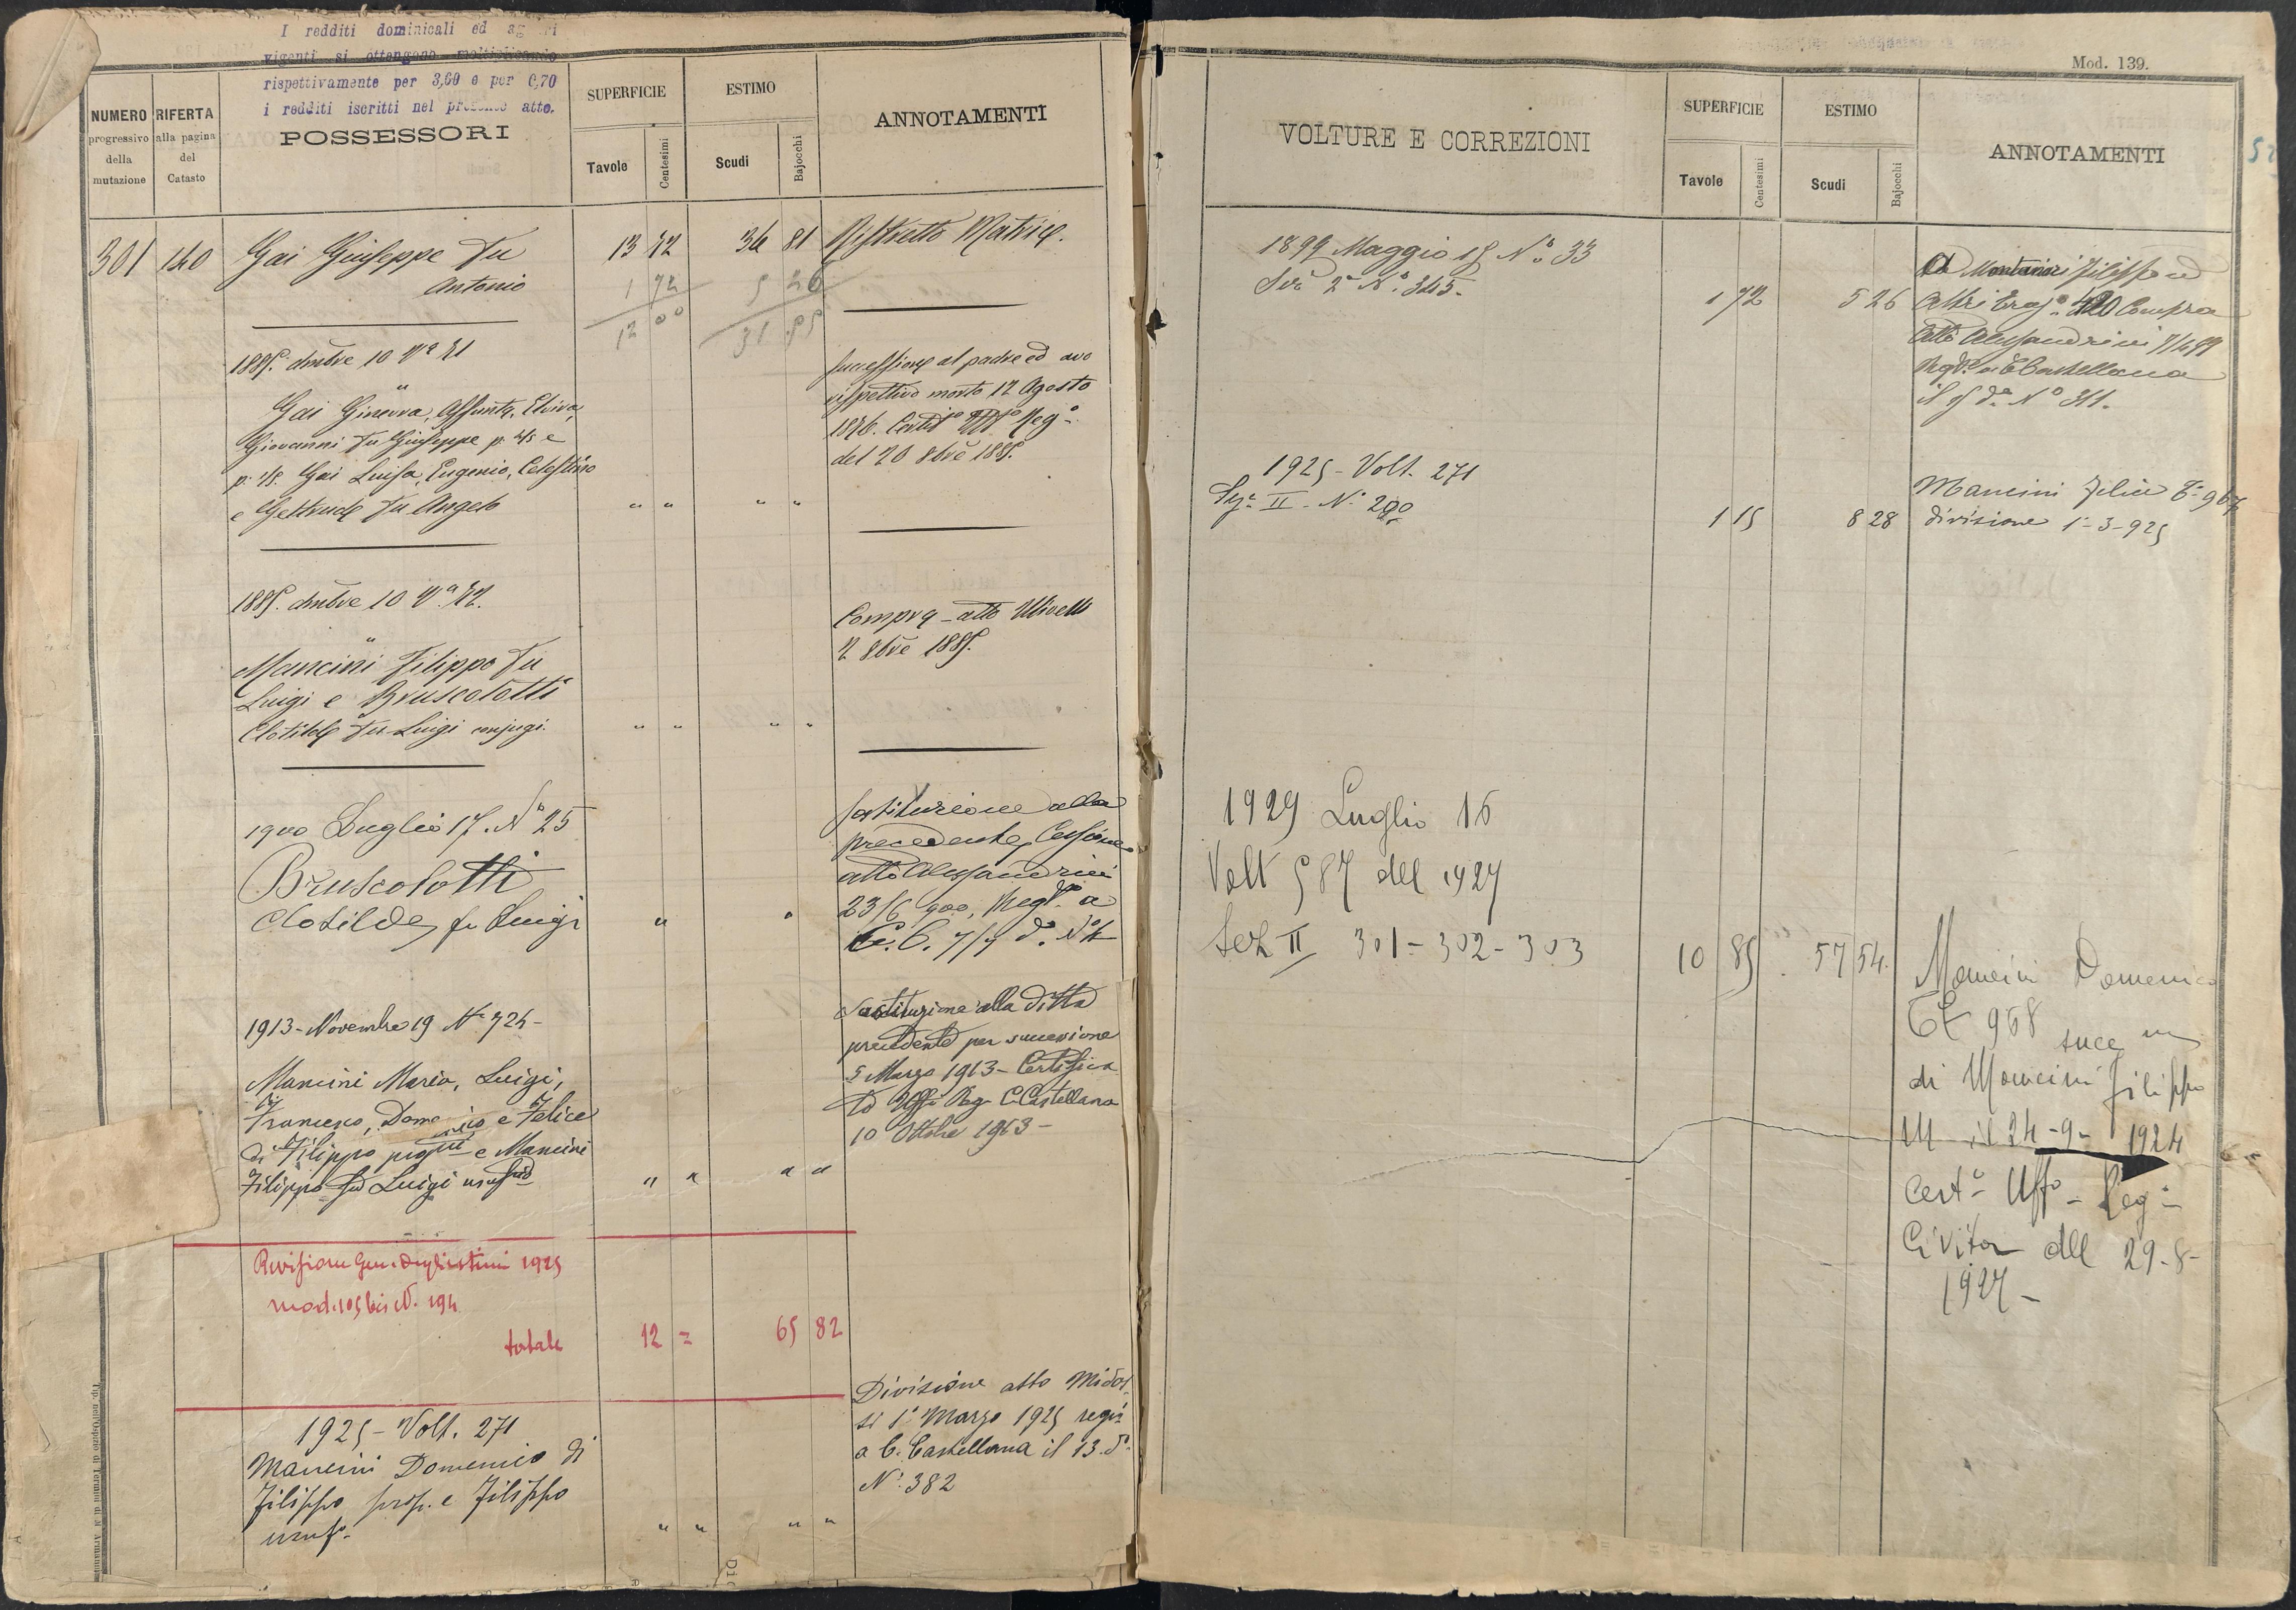 I redditi dominicali ed agrari
vigenti si ottengono moltiplicando
rispettivamente per 3,60 e per 0,70
i redditi iscritti nel presente atto.
NUMERO
progressivo
della
mutazione
RIFERTA
alla pagina
del
Catasto
POSSESSORI
SUPERFICIE
Tavole
Centesimi
ESTIMO
Scudi
Bajocchi
ANNOTAMENTI
301 140 Gai Giuseppe fu 13 72 36 81 Ristretto Matrice.
Antonio 1 72 5 26
12 00 31 55
1885. dmbre 10 Va 71
Gai Ginevra, Assunta, Elvira,
Giovanni fu Giuseppe p. 4/5 e
p. 1/5. Gai Luisa, Eugenio, Celestino
e Geltrude fu Angelo " " " "
Successione al padre ed avo
rispettivo morto 12 Agosto
1876. Certif.to Uff.o Reg.o
del 20 8bre 1885.
1885. dmbre 10 Va 72.
Mancini Filippo fu
Luigi e Bruscolotti
Clotilde fu Luigi conjugi. " " " "
Compra - atto Ulivelli
2 8bre 1885.
1900 Luglio 17. No 25
Bruscolotti
Clotilde fu Luigi " "
Sostituzione alla
precedente, Cessione
atto Alessandrini
23/6 900, Regto a
C. C. 7/7 do. No
1913 - Novembre 19 No 724 -
Mancini Maria, Luigi,
Francesco, Domenico e Felice
di Filippo propri e Mancini
Filippo fu Luigi usufrio " " " "
Sostituzione alla Ditta
precedente per successione
5 Marzo 1913 - Certifica
to Uffo Reg C. Castellana
10 Ottobre 1913 -
Revisione Gen. degli estimi 1925
mod. 105 bis N. 194
totale 12 = 65 82
1925 - Volt. 271
Mancini Domenico di
Filippo prop. e Filippo
usufo. " " " "
Divisione atto Midos
si 1o Marzo 1925 regis
a C. Castellana il 13 do
No 382
Tip. nell'Ospizio di Termini di N. Armanni
Mod. 139.
VOLTURE E CORREZIONI
SUPERFICIE
Tavole
Centesimi
ESTIMO
Scudi
Bajocchi
ANNOTAMENTI
1899 Maggio 15 No 33
Sez 2a No 345. 1 72 5 26
A Montanari Filippo ed
Altri Trasto 420 Compra
Atto Alessandrini 7/4 99
Regto a C Castellana
il do No 311.
1925 - Volt. 271
Seze II - No 290 1 15 8 28
Mancini Felice To 967
divisione 1o - 3 - 925
1929 Luglio 16
Volt 587 del 1927
Sez II 301 - 302 - 303 10 85 57 54
Mancini Domenico
Tt 968 succ ne
di Mancini Filippo
M il 24 - 9 - 1924
Certo Uffo - Rego
Civita del 29 - 8 -
1927 -